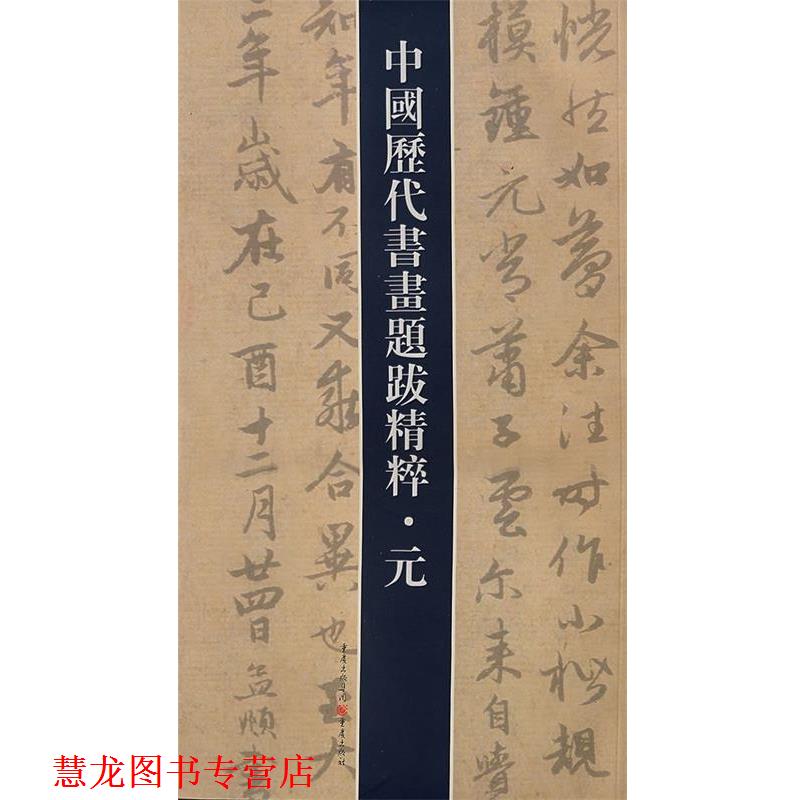 恍然如夢余往時作小楷規
模鍾元常蕭子雲爾來自
中國歷代書畫題跋精粹·元
如年有不同又乖合異也王大
二年歲在己酉十二月廿四日孟頫書
重慶出版集團 重慶出版社
慧龙图书专营店